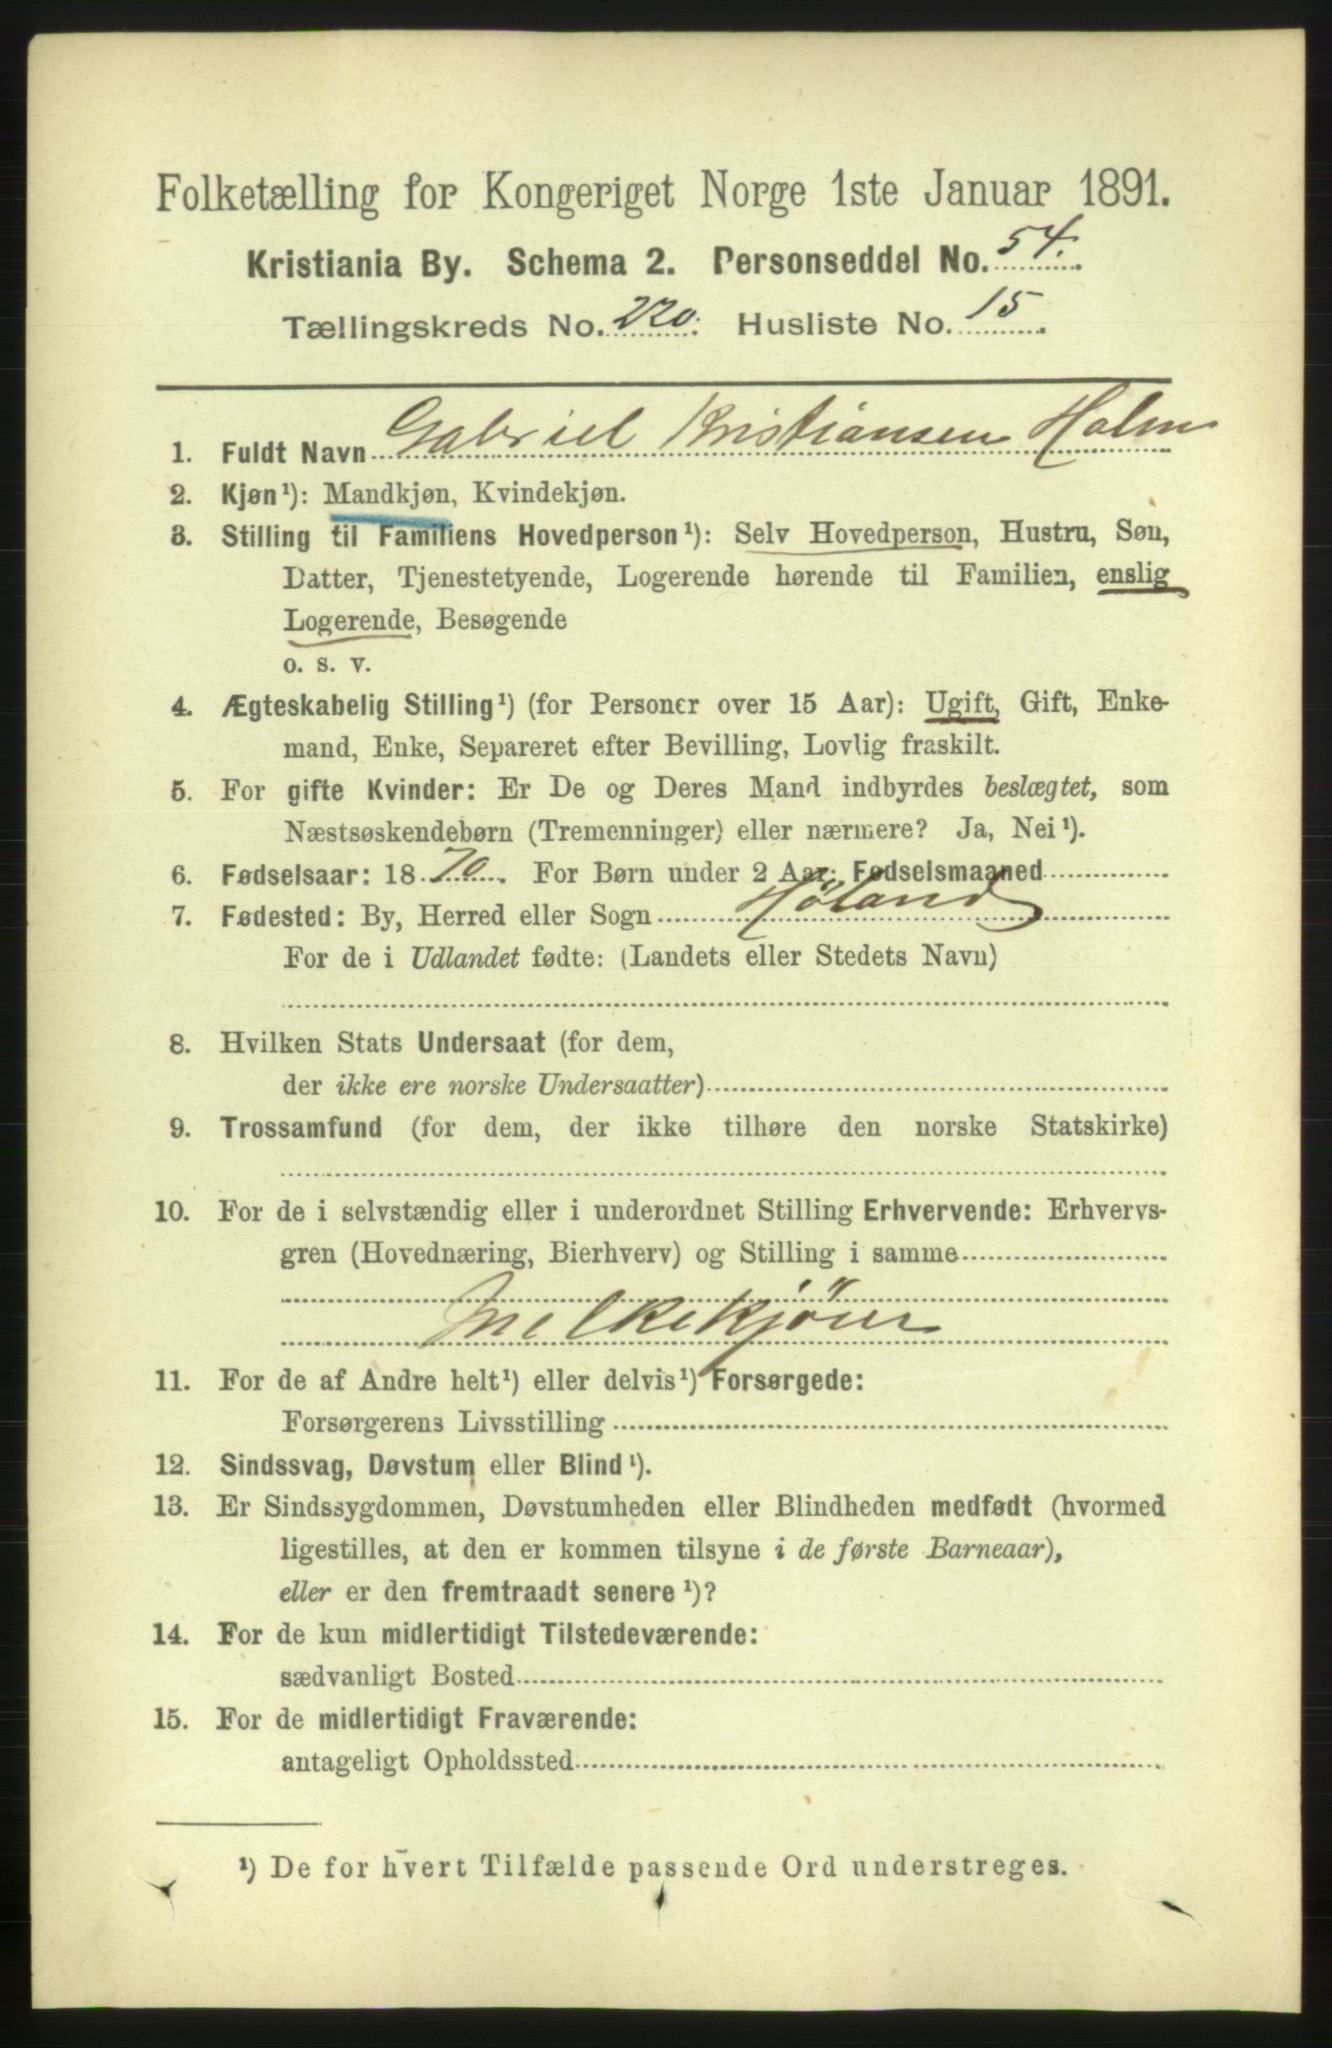 Folketælling for Kongeriget Norge 1ste Januar 1891.
Kristiania By. Schema 2. Personseddel No. 54.
Tællingskreds No. 220. Husliste No. 15.
1. Fuldt Navn Gabriel Kristiansen Holm
2. Kjøn¹): Mandkjøn, Kvindekjøn.
3. Stilling til Familiens Hovedperson¹): Selv Hovedperson, Hustru, Søn,
Datter, Tjenestetyende, Logerende hørende til Familien, enslig
Logerende, Besøgende
o. s. v.
4. Ægteskabelig Stilling¹) (for Personer over 15 Aar): Ugift, Gift, Enke-
mand, Enke, Separeret efter Bevilling, Lovlig fraskilt.
5. For gifte Kvinder: Er De og Deres Mand indbyrdes beslægtet, som
Næstsøskendebørn (Tremenninger) eller nærmere? Ja, Nei¹).
6. Fødselsaar: 1870. For Børn under 2 Aar: Fødselsmaaned
7. Fødested: By, Herred eller Sogn Høland
For de i Udlandet fødte: (Landets eller Stedets Navn)
8. Hvilken Stats Undersaat (for dem,
der ikke ere norske Undersaatter)
9. Trossamfund (for dem, der ikke tilhøre den norske Statskirke)
10. For de i selvstændig eller i underordnet Stilling Erhvervende: Erhvervs-
gren (Hovednæring, Bierhverv) og Stilling i samme
Melkekjører
11. For de af Andre helt¹) eller delvis¹) Forsørgede:
Forsørgerens Livsstilling
12. Sindssvag, Døvstum eller Blind¹).
13. Er Sindssygdommen, Døvstumheden eller Blindheden medfødt (hvormed
ligestilles, at den er kommen tilsyne i de første Barneaar),
eller er den fremtraadt senere¹)?
14. For de kun midlertidigt Tilstedeværende:
sædvanligt Bosted
15. For de midlertidigt Fraværende:
antageligt Opholdssted
¹) De for hvert Tilfælde passende Ord understreges.